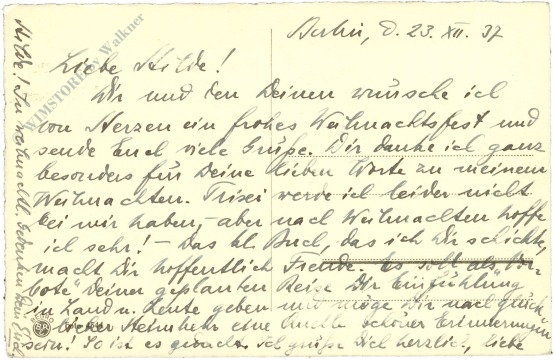 Berlin, d. 23. XII. 37
Liebe Hilde!
Dir und den Deinen wünsche ich
von Herzen ein frohes Weihnachtsfest und
sende Euch viele Grüße. Dir danke ich ganz
besonders für Deine lieben Worte zu meinem
Weihnachten. Trisei werde ich leider nicht
bei mir haben, - aber nach Weihnachten hoffe
ich sehr! - Das kl. Buch, das ich Dir schickte,
macht Dir hoffentlich Freude. Es soll als "Vor-
bote" Deiner geplanten Reise Dir Einführung
in Land u. Leute geben und möge Dir nach glück-
licher Heimkehr eine Quelle schöner Erinnerungen
sein! So ist es gedacht. Ich grüße Dich herzlich, liebe
Hilde! In weihnachtl. Gedenken Dein
WIMSTORE by Walkner